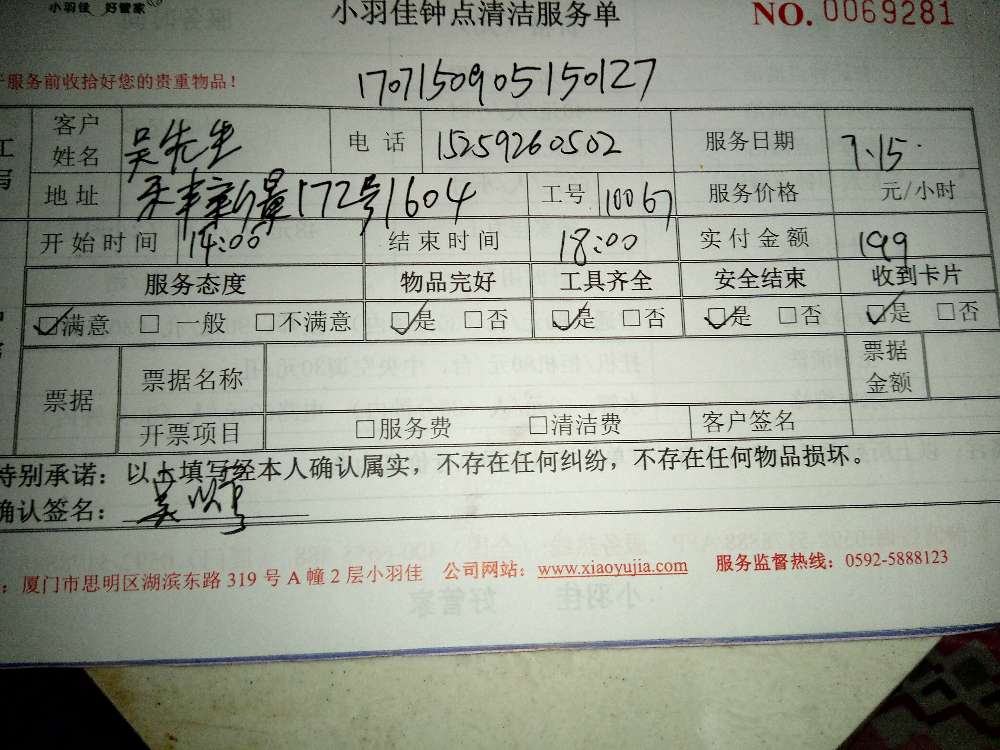 小羽佳 好管家
小羽佳钟点清洁服务单 NO. 0069281
服务前收拾好您的贵重物品！ 1707150905150127
客户姓名 吴先生 电 话 15259260502 服务日期 7.15.
地 址 172号1604 工号 10067 服务价格 元/小时
开 始 时 间 14:00 结 束 时 间 18:00 实 付 金 额 199
服务态度 物品完好 工具齐全 安全结束 收到卡片
☑满意 □ 一般 □不满意 ☑是 □否 ☑是 □否 ☑是 □否 ☑是 □否
票据 票据名称 票据金额
开票项目 □服务费 □清洁费 客户签名
特别承诺：以上填写经本人确认属实，不存在任何纠纷，不存在任何物品损坏。
确认签名：
：厦门市思明区湖滨东路 319 号 A 幢 2 层小羽佳 公司网站：www.xiaoyujia.com 服务监督热线：0592-5888123